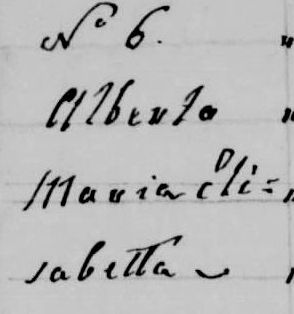 N° 6.
Alberto
Maria Eli=
sabetta